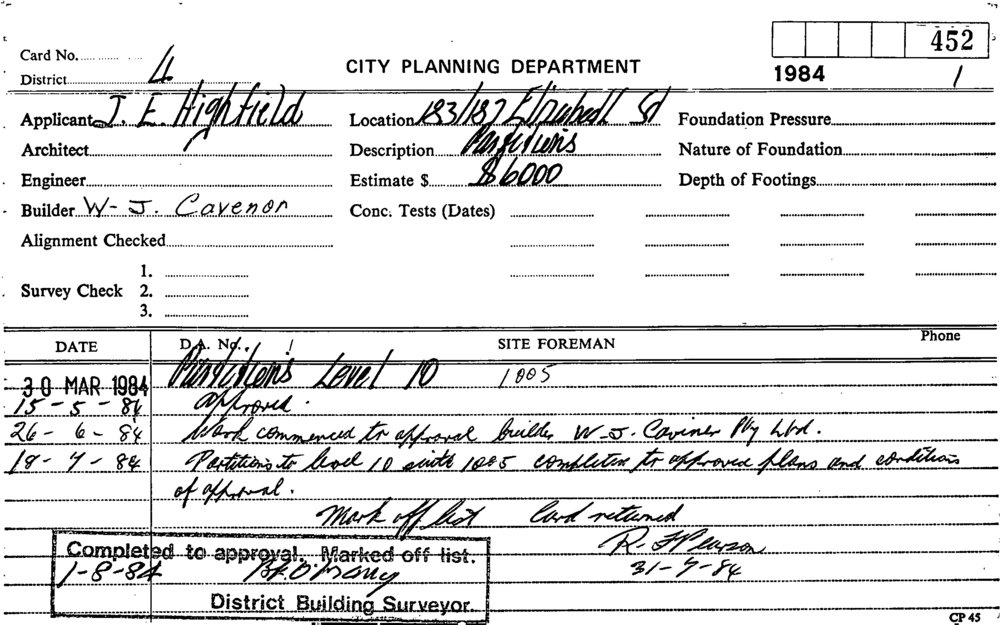 452
Card No.
CITY PLANNING DEPARTMENT
1984 1
District 4
Applicant J. E. Highfield Location 183/187 Elizabeth St Foundation Pressure
Architect Description Partitions Nature of Foundation
Engineer Estimate $ $6000 Depth of Footings
Builder W- J. Cavenor Conc. Tests (Dates)
Alignment Checked
1.
Survey Check 2.
3.
DATE D.A. No. SITE FOREMAN Phone
30 MAR 1984 Partitions Level 10 1005
15-5-84 approved.
26-6-84 Work commenced to approval builder W-J. Caviner Pty Ltd.
18-7-84 Partitions to level 10 suite 1005 completed to approved plans and conditions
of approval.
Mark off list Card returned
R. Pearson
31-7-84
Completed to approval. Marked off list.
1-8-84
District Building Surveyor.
CP 45